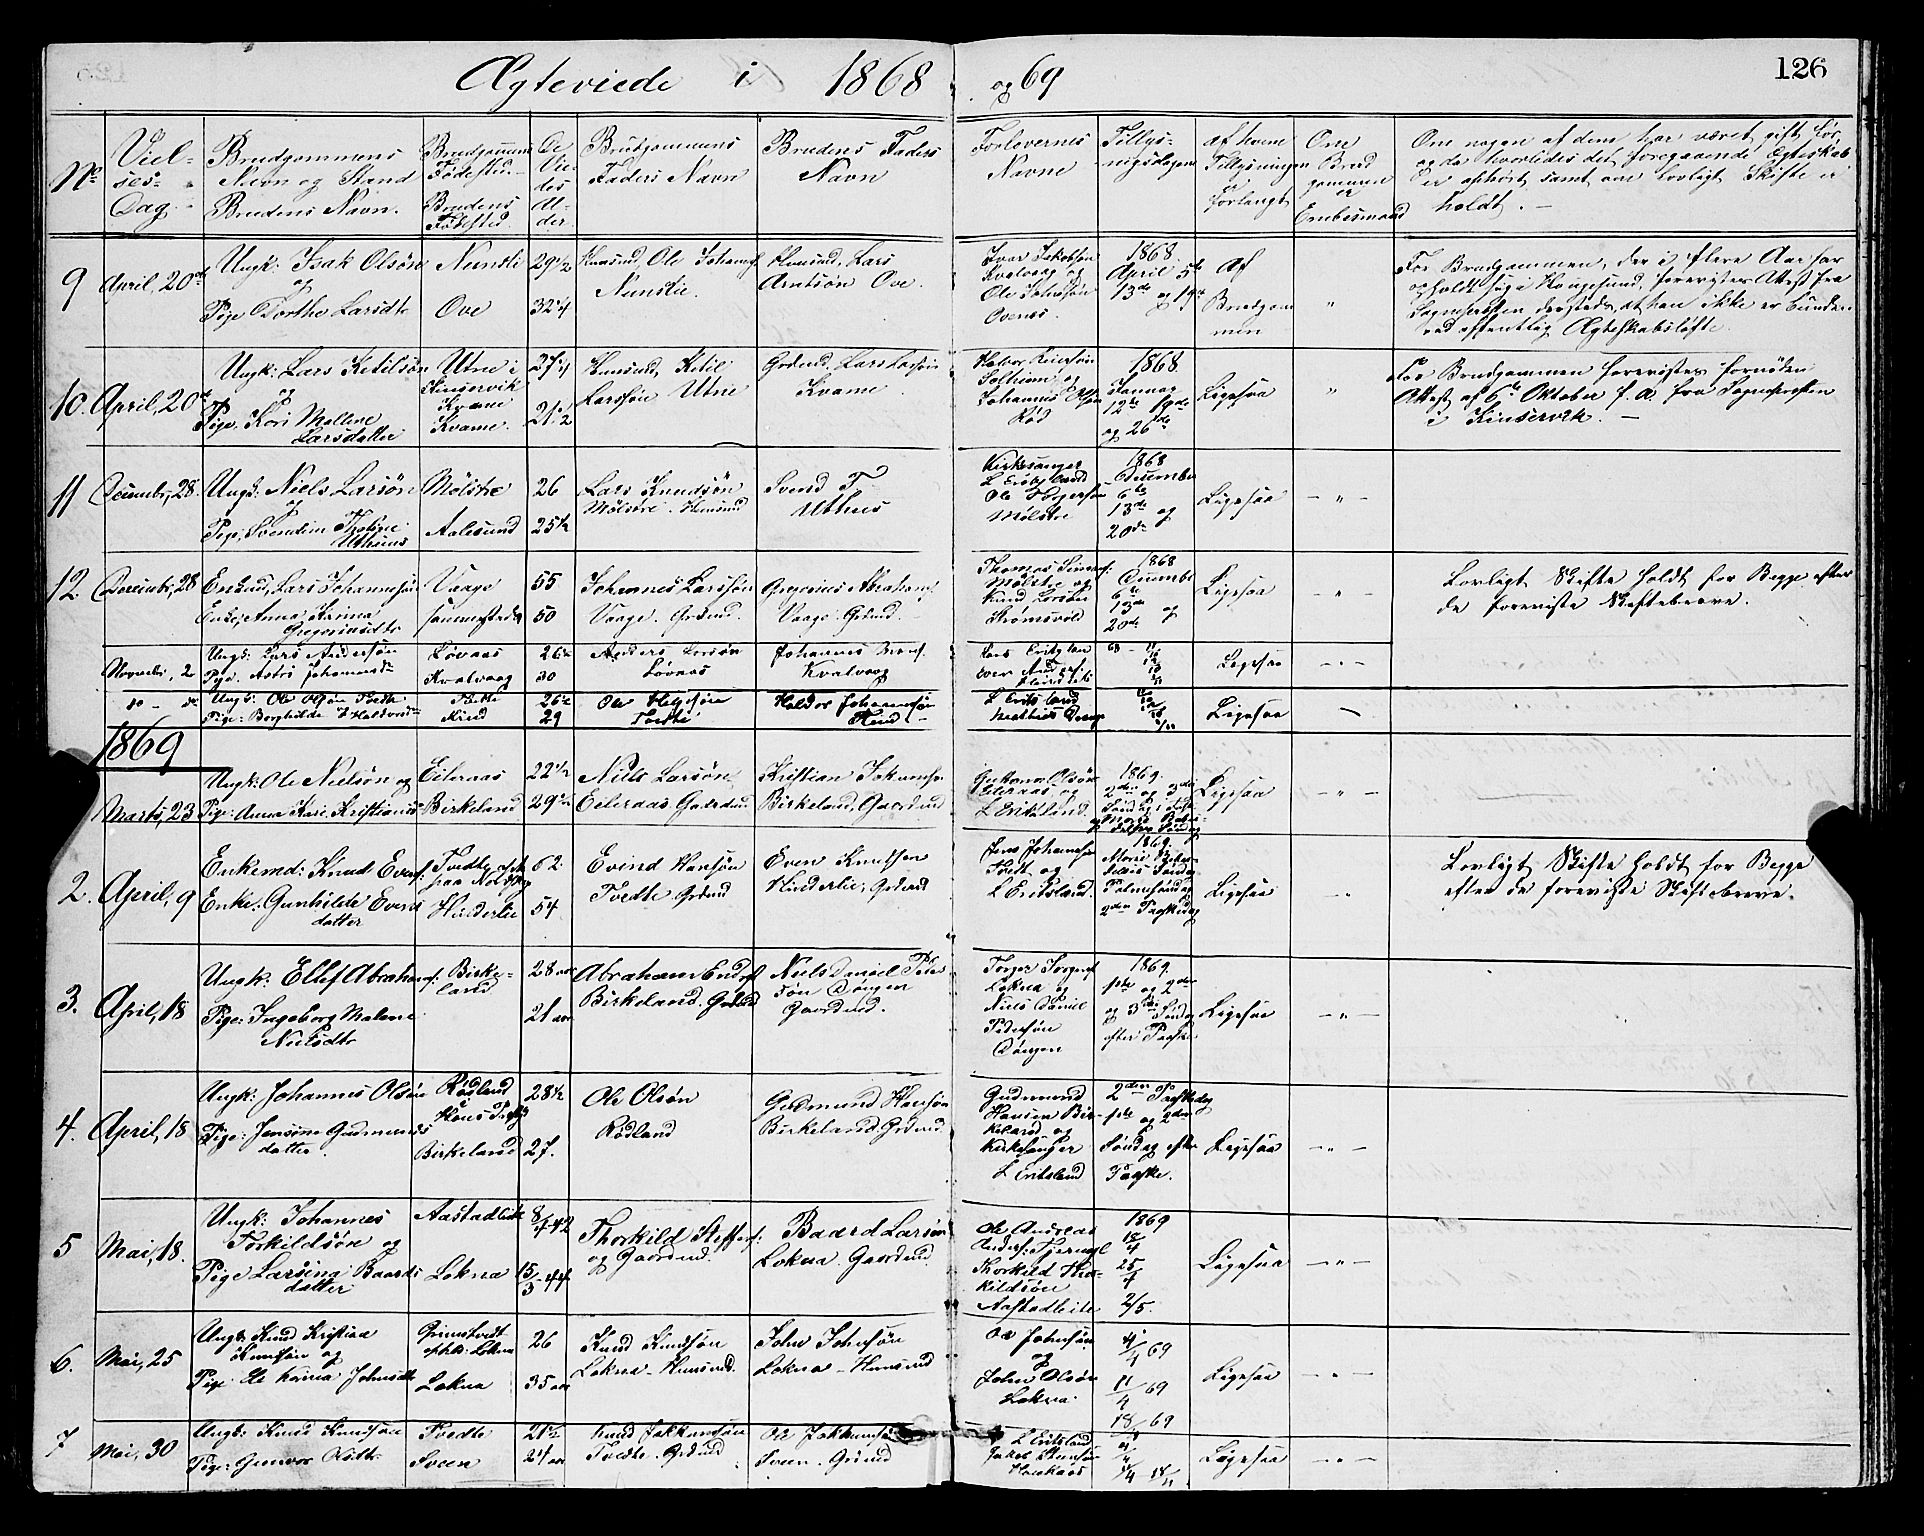 Ægteviede i 1868 og 69
126
No
Vielses-Dag
Brudgommens Navn og Stand
Brudens Navn.
Brudgommens Fødested
Brudens Fødested
De Viedes Alder
Brudgommens Faders Navn
Brudens Faders Navn
Forlovernes Navne
Tillysningsdagene
af hvem Tillysningen forlangt
Om Brudgommen er Embedsmand
Om nogen af dem har været gift før,
og da hvorledes det foregaaende Ægteskab
er ophørt samt om lovligt Skifte er
holdt. —
9 April, 20de
Ungk: Isak Olsøn
og
Pige Dorthe Larsdtr
Nunslie
Ove
29 1/2
32 3/4
Huusmd, Ole Johannes
Nunslie.
Huusmd, Lars
Arntsøn Ove.
Ivar Jakobsøn
Kvalvaag og
Ole Johnsøn
Ovenes.
1868
April 5te
13de og 19de
Af
Brudgommen
"
For Brudgommen, der i flere Aar har
opholdt sig i Haugesund, forevistes Attest fra
Sognepresten dersteds, at han ikke er bunden
ved offentlig Ægteskabsløfte.
10. April, 20de
Ungk: Lars Ketilsøn
og
Pige, Kari Mallene
Larsdatter
Utne i
Kinservik
Kvame
Kvame.
27 3/4
21 1/2
Huusmd, Ketil
Larssøn Utne
Grdmd, Lars Larssøn
Kvame
Solheim og
Johannes Olsøn
Rød
1868
Januar
12te 19de
og 26de
Ligesaa
"
For Brudgommen forevistes fornøden
Attest af 6te Oktober f. A. fra Sognepresten
i Kinservik. —
11 Decembr, 28.
Ungk: Niels Larsøn
og
Pige, Svendine Thaline
Uthuus
Mølstre
Aalesund
26
25 1/2
Lars Knudsøn
Mølstre. Huusmd
Svend T
Uthuus
Kirkesanger
L Eritsland
Ole Torgersøn
Mølstre
1868
December
6te
13de og
20de
Ligesaa
— " —
12. Decembr, 28
Enkemd, Lars Johannesøn
Enke, Anna Karina
Gregoriusdtr
Vaage
Sønnesteds
55
50
Johannes Larssøn
Vaage. Grdmd.
Gregorius Abrahams.
Vaage. Grdmd.
Thomas Simons:
Mølstre og
Knud Larsøn
Strømsvold
1868
Decembr
6te
13de og
20de
Ligesaa
— " —
Lovligt Skifte holdt for Begge efter
de foreviste Skiftebreve.
Novembr, 2
Ungk: Lars Andersøn
Pige. Astri Johannesdtr
Løvaas
Kvalvaag
26 1/2
30
Anders Larsøn
Løvaas
Johannes
Kvalvaag
68
Ligesaa
— " —
do — do
Ungk: Ole Olsøn Tvedte
Pige: Borghilde Haldorsdtr
Tvedte
Hind
26 1/2
29
Ole Helgesøn
Tvedte
Haldor Johannesøn
Hind —
L Eritsland
Ligesaa
1869
Marts, 23
Ungk: Ole Nielsøn og
Pige: Anna Kari Kristiansd
Eileraas
Birkeland
22 1/2
29 1/2
Niels Larsøn
Eileraas Gaardmd
Kristian Johannesøn
Birkeland, Gaardmd
Guttorm Olsøn
Eileraas, og
L Eritsland.
1869.
2den og 3die
Søndag i Faste
og Mariæ Bebudelses Søndag
Ligesaa
— " —
2. April, 9
Enkemd: Knud Evens:
Enke. Gunhilde Evens
datter
Tvedte, oph.
Hinderlie
62
54
Evind Hansøn
Tvedte Grdmd
Even Knudsøn
Hinderlie, Grdmd
Jens Johannesøn
Tvedt og
L Eritsland.
1869.
Mariæ Bebudelses Søndag
Palmesøndag
2den Paaskedag
Ligesaa
"
Lovligt Skifte holdt for Begge
efter de foreviste Skiftebreve.
3. April, 18
Ungk: Ellef Abrahams:
Pige: Ingeborg Malene
Nielsdtr
Birkeland
28 aar
21 aar
Abraham Endres:
Birkeland. Grdmd
Niels Daniel Pedersøn Dongen
Gaardmd.
Torger Torgers:
Lokna og
Niels Daniel
Pedersøn
Dongen
1869
1ste og 2den
og 3die Søndag
efter Paaske
Ligesaa
— " —
4. April, 18
Ungk: Johannes Olsøn
Pige: Jensine Gudmunds
datter.
Rødland
Birkeland
28 1/2
27.
Ole Olsøn
Rødland
Gudmund Hansøn
Birkeland. Grdmd.
Gudmund
Hansen Birkeland og
Kirkesanger
L Eritsland
2den Paaskedag
1ste og 2den
Søndag efter
Paaske.
Ligesaa
— " —
5 Mai, 18.
Ungk: Johannes
Torkildsøn og
Pige Larsina Baards
datter
Aastadleite
Lokna
8/7-42
15/3-44
Thorkild Steffens:
og Gaardmd.
Baard Larsøn
Lokna. Gaardmd.
Ole Andreas
Anders:
Thorkild Thorkildsøn
Aastadleite
1869
18/4
25/4
2/5.
Ligesaa
— " —
6. Mai, 25
Ungk: Knud Kristian
Knudsøn og
Pige. Ele Karina Johnsdtr
Grimstvedt
oph: Lokna
Lokna
26
35 aar
Knud Knudsøn
Lokna — Huusmd.
John Johnsøn
Lokna — Huusmd
Ole Johnsøn
og
John Olsøn
Lokna.
4/4 69
11/4 69
18/4 69
Ligesaa
— " —
7 Mai, 30
Ungk: Knud Knudsøn
Pige: Gunvor Olsdtr
Tvedte
Sveen
21 1/2
24 aar
Knud Jakkumsøn
Tvedte. Grdmd
Ole Jakkumsøn
Sveen. Grdmd
L Eritsland
Ligesaa
— " —